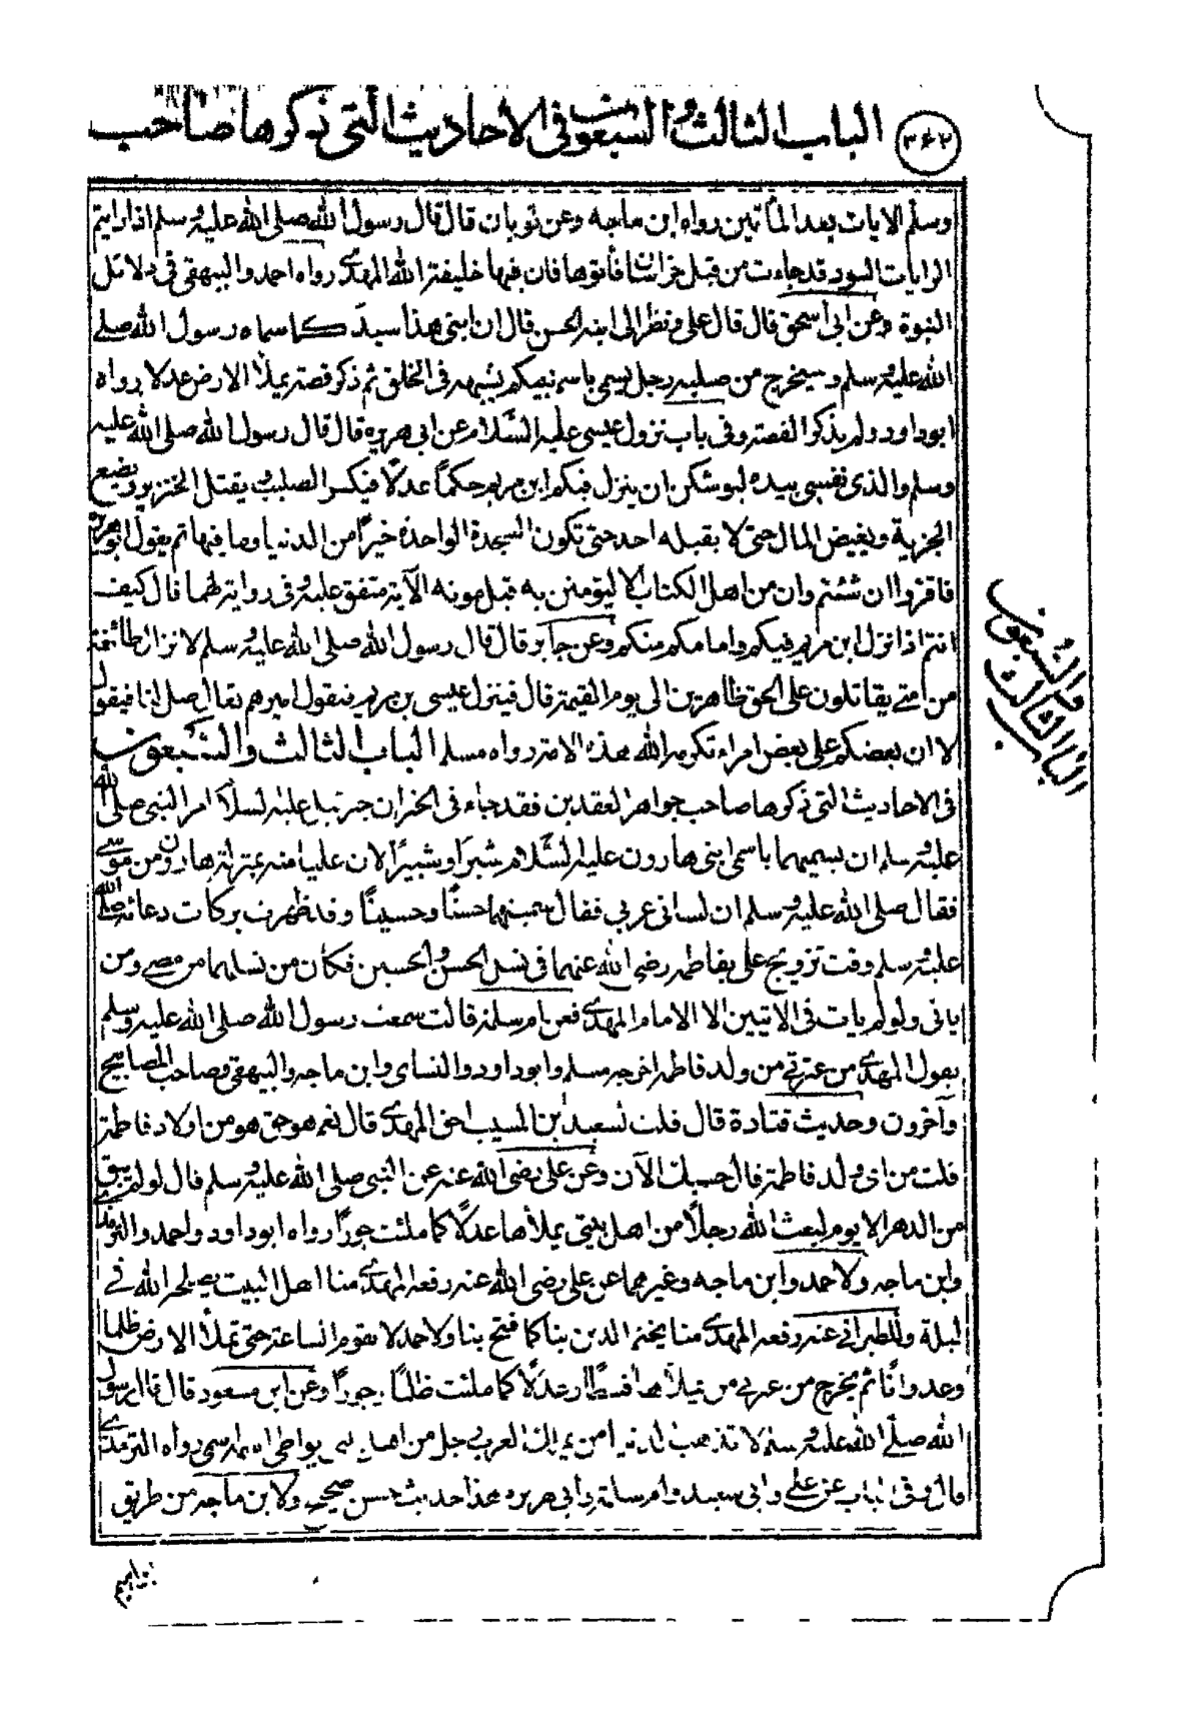 الباب الثالث والسبعون فى الاحاديث التى ذكرها صاحب
٣۶٢
وسلم الايات بعد المأتين رواه ابن ماجه وعن ثوبان قال قال رسول الله صلى الله عليه وسلم اذا رايتم
الرايات السود قد جاءت من قبل خراسان فأتوها فان فيها خليفة الله المهدى رواه احمد والبيهقى فى دلائل
النبوة وعن ابى اسحق قال قال على ونظر الى ابنه الحسن قال ان ابنى هذا سيد كما سماه رسول الله صلى
الله عليه وسلم وسيخرج من صلبه رجل يسمى باسم نبيكم يشبهه فى الخلق ثم ذكر قصة يملأ الارض عدلا رواه
ابوداود ولم يذكر القصة وفى باب نزول عيسى عليه السلام عن ابى هريره قال قال رسول الله صلى الله عليه
وسلم والذى نفسى بيده ليوشكن ان ينزل فيكم ابن مريم حكمًا عدلًا فيكسر الصليب يقتل الخنزير ويضع
الجزية ويفيض المال حتى لا يقبله احد حتى تكون السجدة الواحدة خيرًا من الدنيا وما فيها ثم يقول ابوهريرة
فاقرؤا ان شئتم وان من اهل الكتاب الا ليؤمنن به قبل موته الآية متفق عليه وفى رواية لهما قال كيف
انتم اذا نزل ابن مريم فيكم وامامكم منكم وعن جابر قال قال رسول الله صلى الله عليه وسلم لا تزال طائفة
من امتى يقاتلون على الحق ظاهرين الى يوم القيمة قال فينزل عيسى بن مريم فيقول اميرهم تعال صل لنا فيقول
لا ان بعضكم على بعض امراء تكرمة الله هذه الامة رواه مسلم الباب الثالث والسبعون
فى الاحاديث التى ذكرها صاحب جواهر العقدين فقد جاء فى الخبر ان جبرئيل عليه السلام امر النبى صلى الله
عليه وسلم ان يسميهما باسمى ابنى هارون عليه السلام شبرا وشبيرًا لان عليا منه بمنزلة هارون من موسى
فقال صلى الله عليه وسلم ان لسانى عربى فقال سمهما حسنًا وحسينًا وقد ظهرت بركات دعائه صلى الله
عليه وسلم وقت تزويج على بفاطمه رضى الله عنهما فى نسل الحسن والحسين فكان من نسلهما من مضى ومن
ياتى ولو لم يات فى الاتيين الا الامام المهدى فعن ام سلمة قالت سمعت رسول الله صلى الله عليه وسلم
يقول المهدى من عترتى من ولد فاطمة اخرجه مسلم وابو داود والنسائى وابن ماجه والبيهقى وصاحب المصابيح
وآخرون وحديث قتادة قال قلت لسعيد بن المسيب احق المهدى قال نعم هو حق هو من اولاد فاطمة
قلت من اى ولد فاطمة قال حسبك الآن وعن على رضى الله عنه عن النبى صلى الله عليه وسلم قال لو لم يبق
من الدهر الا يوم لبعث الله رجلًا من اهل بيتى يملأها عدلًا كما ملئت جورًا رواه ابو داود واحمد والترمذى
وابن ماجه ولاحمد وابن ماجه وغيرهما عن على رضى الله عنه رفعه المهدى منا اهل البيت يصلحه الله فى
ليلة وللطبرانى عنه رفعه المهدى منا يختم الدين بنا كما فتح بنا ولاحمد لا يقوم الساعة حتى تملأ الارض ظلما
وعدوانًا ثم يخرج من عترتى من يملأها قسطًا وعدلًا كما ملئت ظلمًا وجورًا وعن ابن مسعود قال قال رسول
الله صلى الله عليه وسلم لا تذهب الدنيا حتى يملك العرب رجل من اهل بيتى يواطئ اسمه اسمى رواه الترمذى
قال وفى الباب عن على وابى سعيد وام سلمة وابى هريره هذا حديث حسن صحيح ولابن ماجه من طريق
الباب الثالث
والسبعون